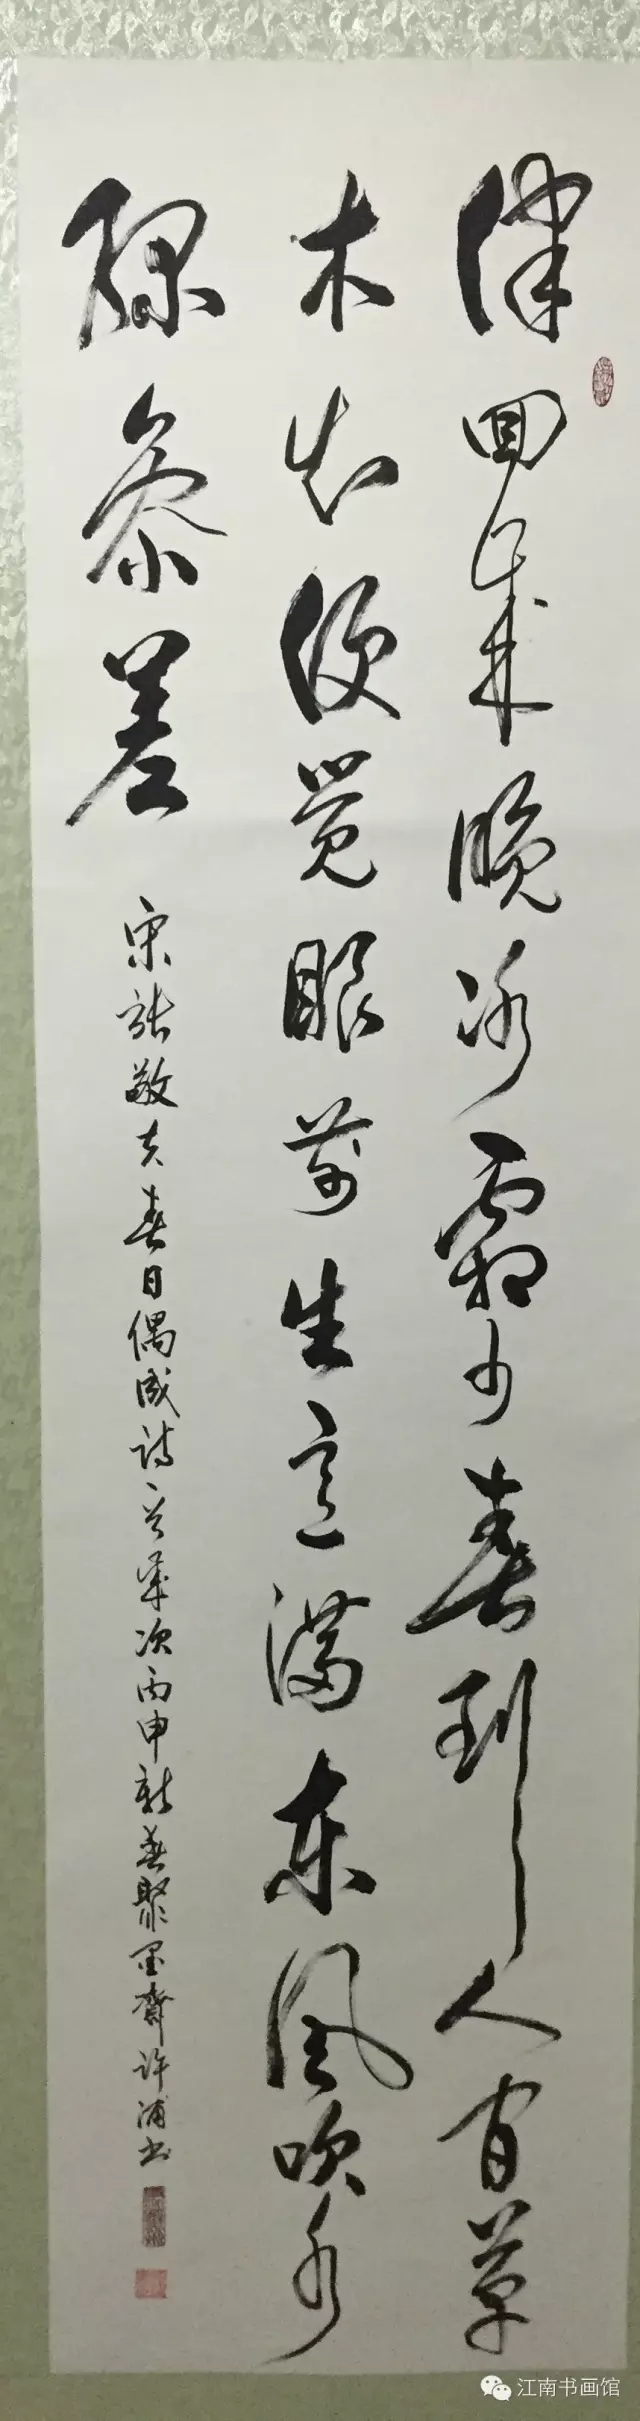 律回岁晚冰霜少春到人间草
木知便觉眼前生意满东风吹水
绿参差
宋张敬夫春日偶成诗一首岁次丙申新春聚墨斋许浦书
江南书画馆